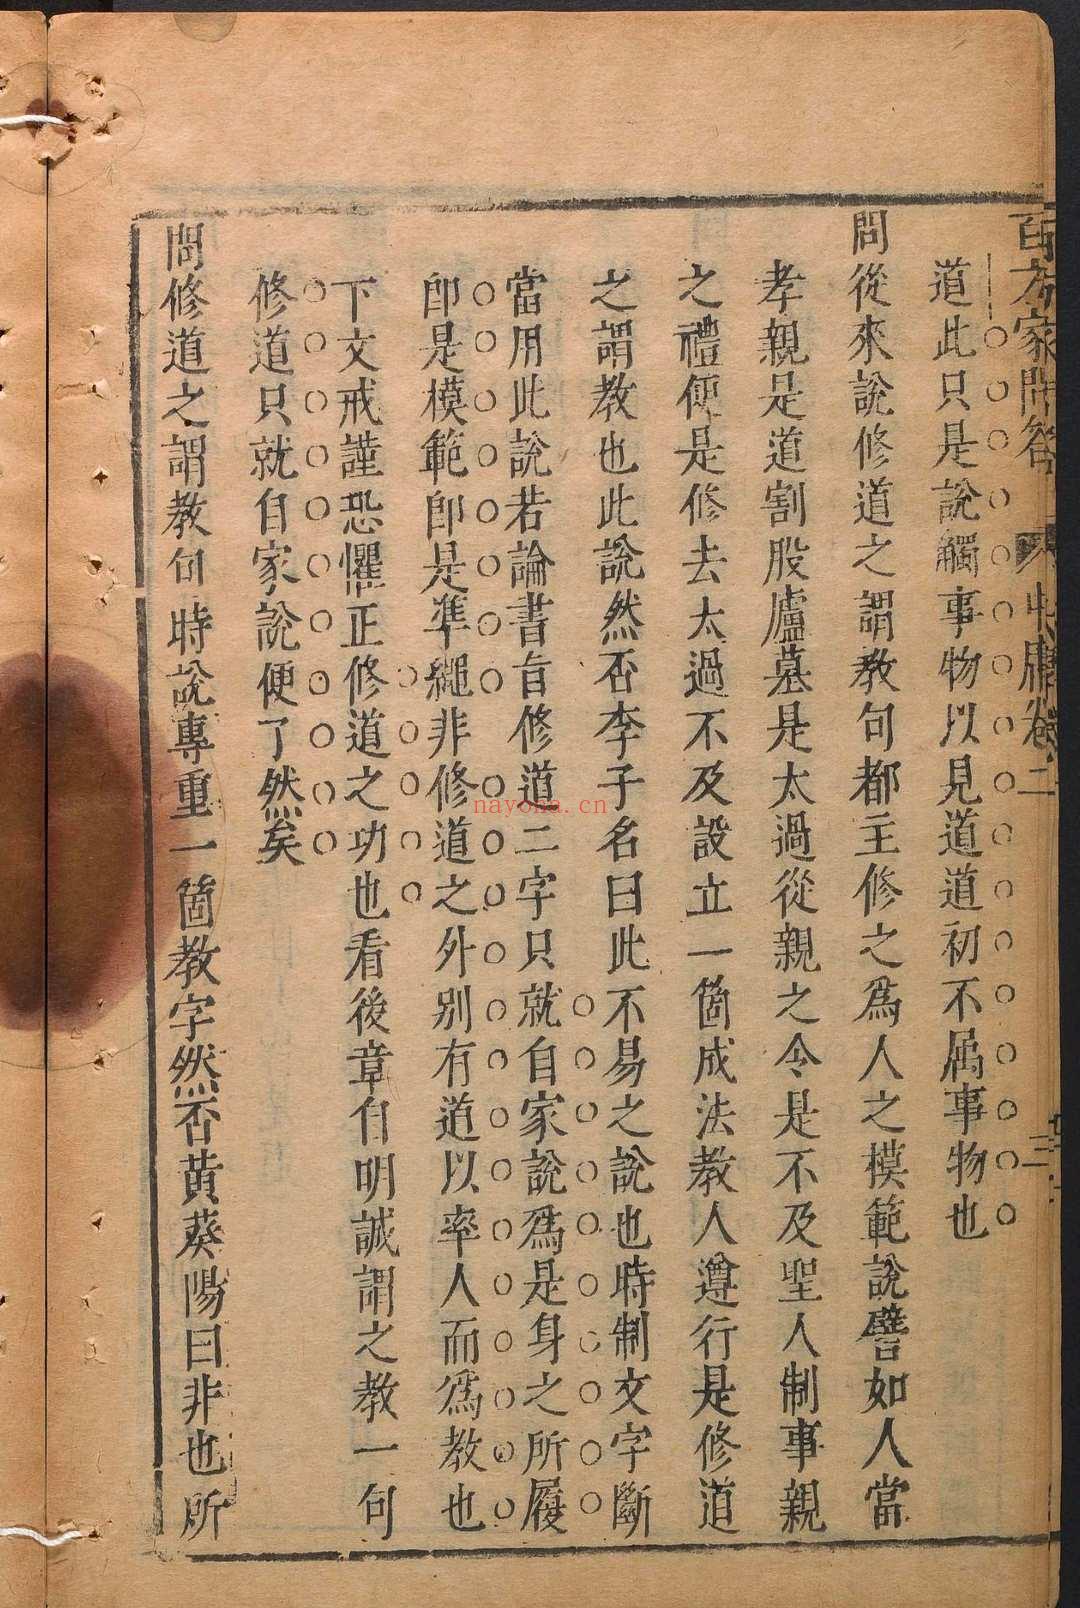 百方家問答 中庸卷二 三
道此只是說觸事物以見道道初不属事物也
問從來說修道之謂教句都主修之爲人之模範說譬如人當
孝親是道割股廬墓是太過從親之令是不及聖人制事親
之禮便是修去太過不及設立一箇成法教人遵行是修道
之謂教也此說然否李子名曰此不易之說也時制文字斷
當用此說若論書旨修道二字只就自家說爲是身之所履
即是模範即是準繩非修道之外别有道以率人而爲教也
下文戒謹恐懼正修道之功也看後章自明誠謂之教一句
修道只就自家說便了然矣
問修道之謂教句時說專重一箇教字然否黄葵陽曰非也所
nayona.cn